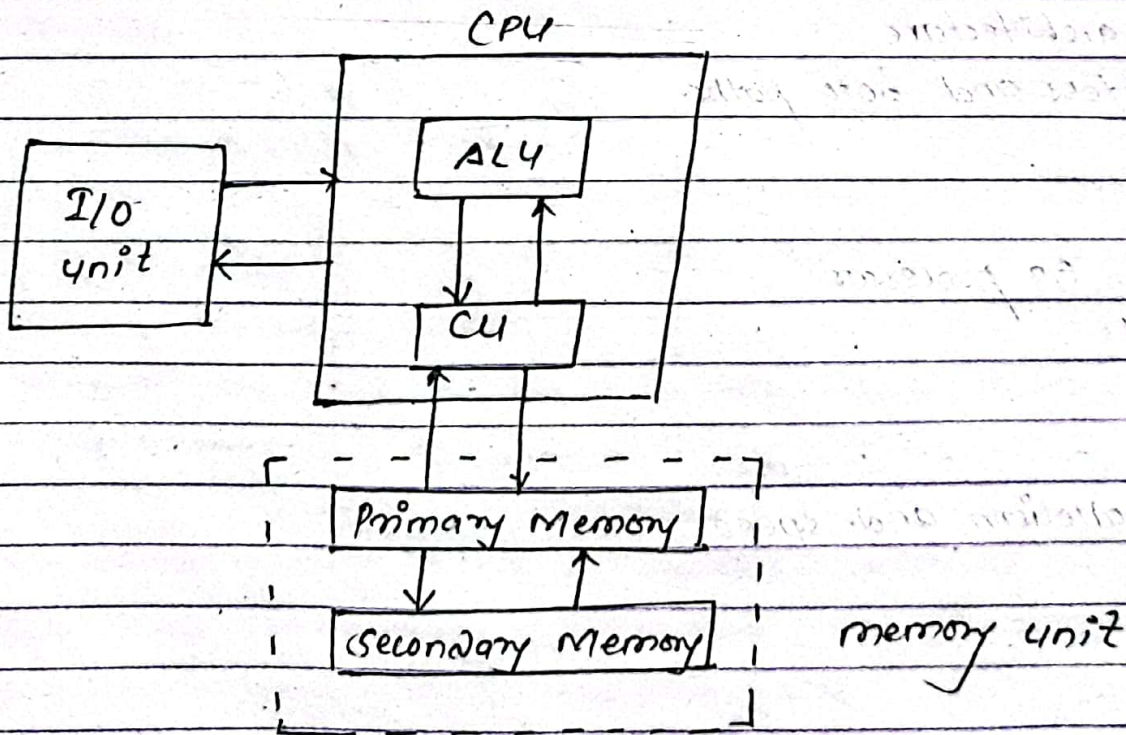 CPU
ALU
I/O
unit
CU
Primary Memory
Secondary Memory
memory unit